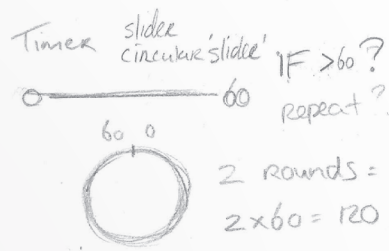 Timer
slider
circular 'slider'
IF >60?
60
repeat?
60 0
2 rounds =
2x60 = 120